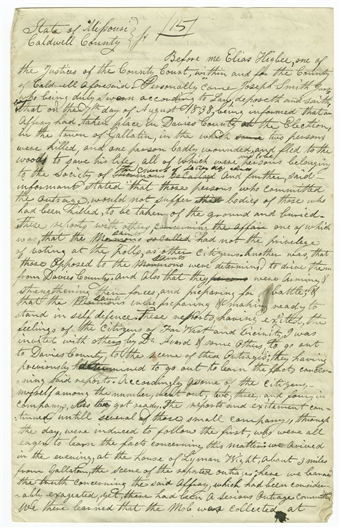 State of Missouri } ss 15
Caldwell County }
Before me Elias Higbee, one of
the Justices of the County Court, within and for the County
of Caldwell aforesaid Personally came Joseph Smith Jun
who being duly sworn according to Law, deposeth and saith,
that on the 7th day of August 1838, being informed that an
Affray had taken place in Davies County at the Election,
in the town of Gallatin, in the which two persons
were killed, and one person badly wounded, and fled to the
woods to save his life, all of which were persons belonging
to the Society of the Church of Latter day Saints and further, said
informant stated that those persons who committed
the outrage, would not suffer the bodies of those who
had been killed, to be taken of the ground and buried
these reports with others concerning the affair one of which
was, that the Saints had not the privelege
of voting at the polls, as other Citizens, another was, that
those opposed to the Saints were determined to drive them
from Davies County, And also that they were arming &
strengthening their forces, and prepairing for battle; &
that the Saints were prepairing & making ready to
stand in self defence. These reports, having excited, the
feelings of the Citizens of Far West and vicinity, I was
invited with others by Dr Avard & some others to go out
to Davies County, to the scene of these Outrages; they having
previously determined to go out to learn the facts concer-
ning said reports. Accordingly some of the Citizens,
myself among the number, went out, two, three, and four, in
companys, as they got ready, The reports and excitement con-
tinued untill several of those small companys through
the day, were induced to follow the first, who were all
eager to learn the facts concerning this matter: we arrived
in the evening, at the house of Lyman Wight, about 3 miles
from Gallatin, the scene of the reported outrages: here we learned
the truth concerning the said Affray, which had been consider-
ably exagerated, yet, there had been a serious Outrage Committed
We there learned that the Mob was collected at